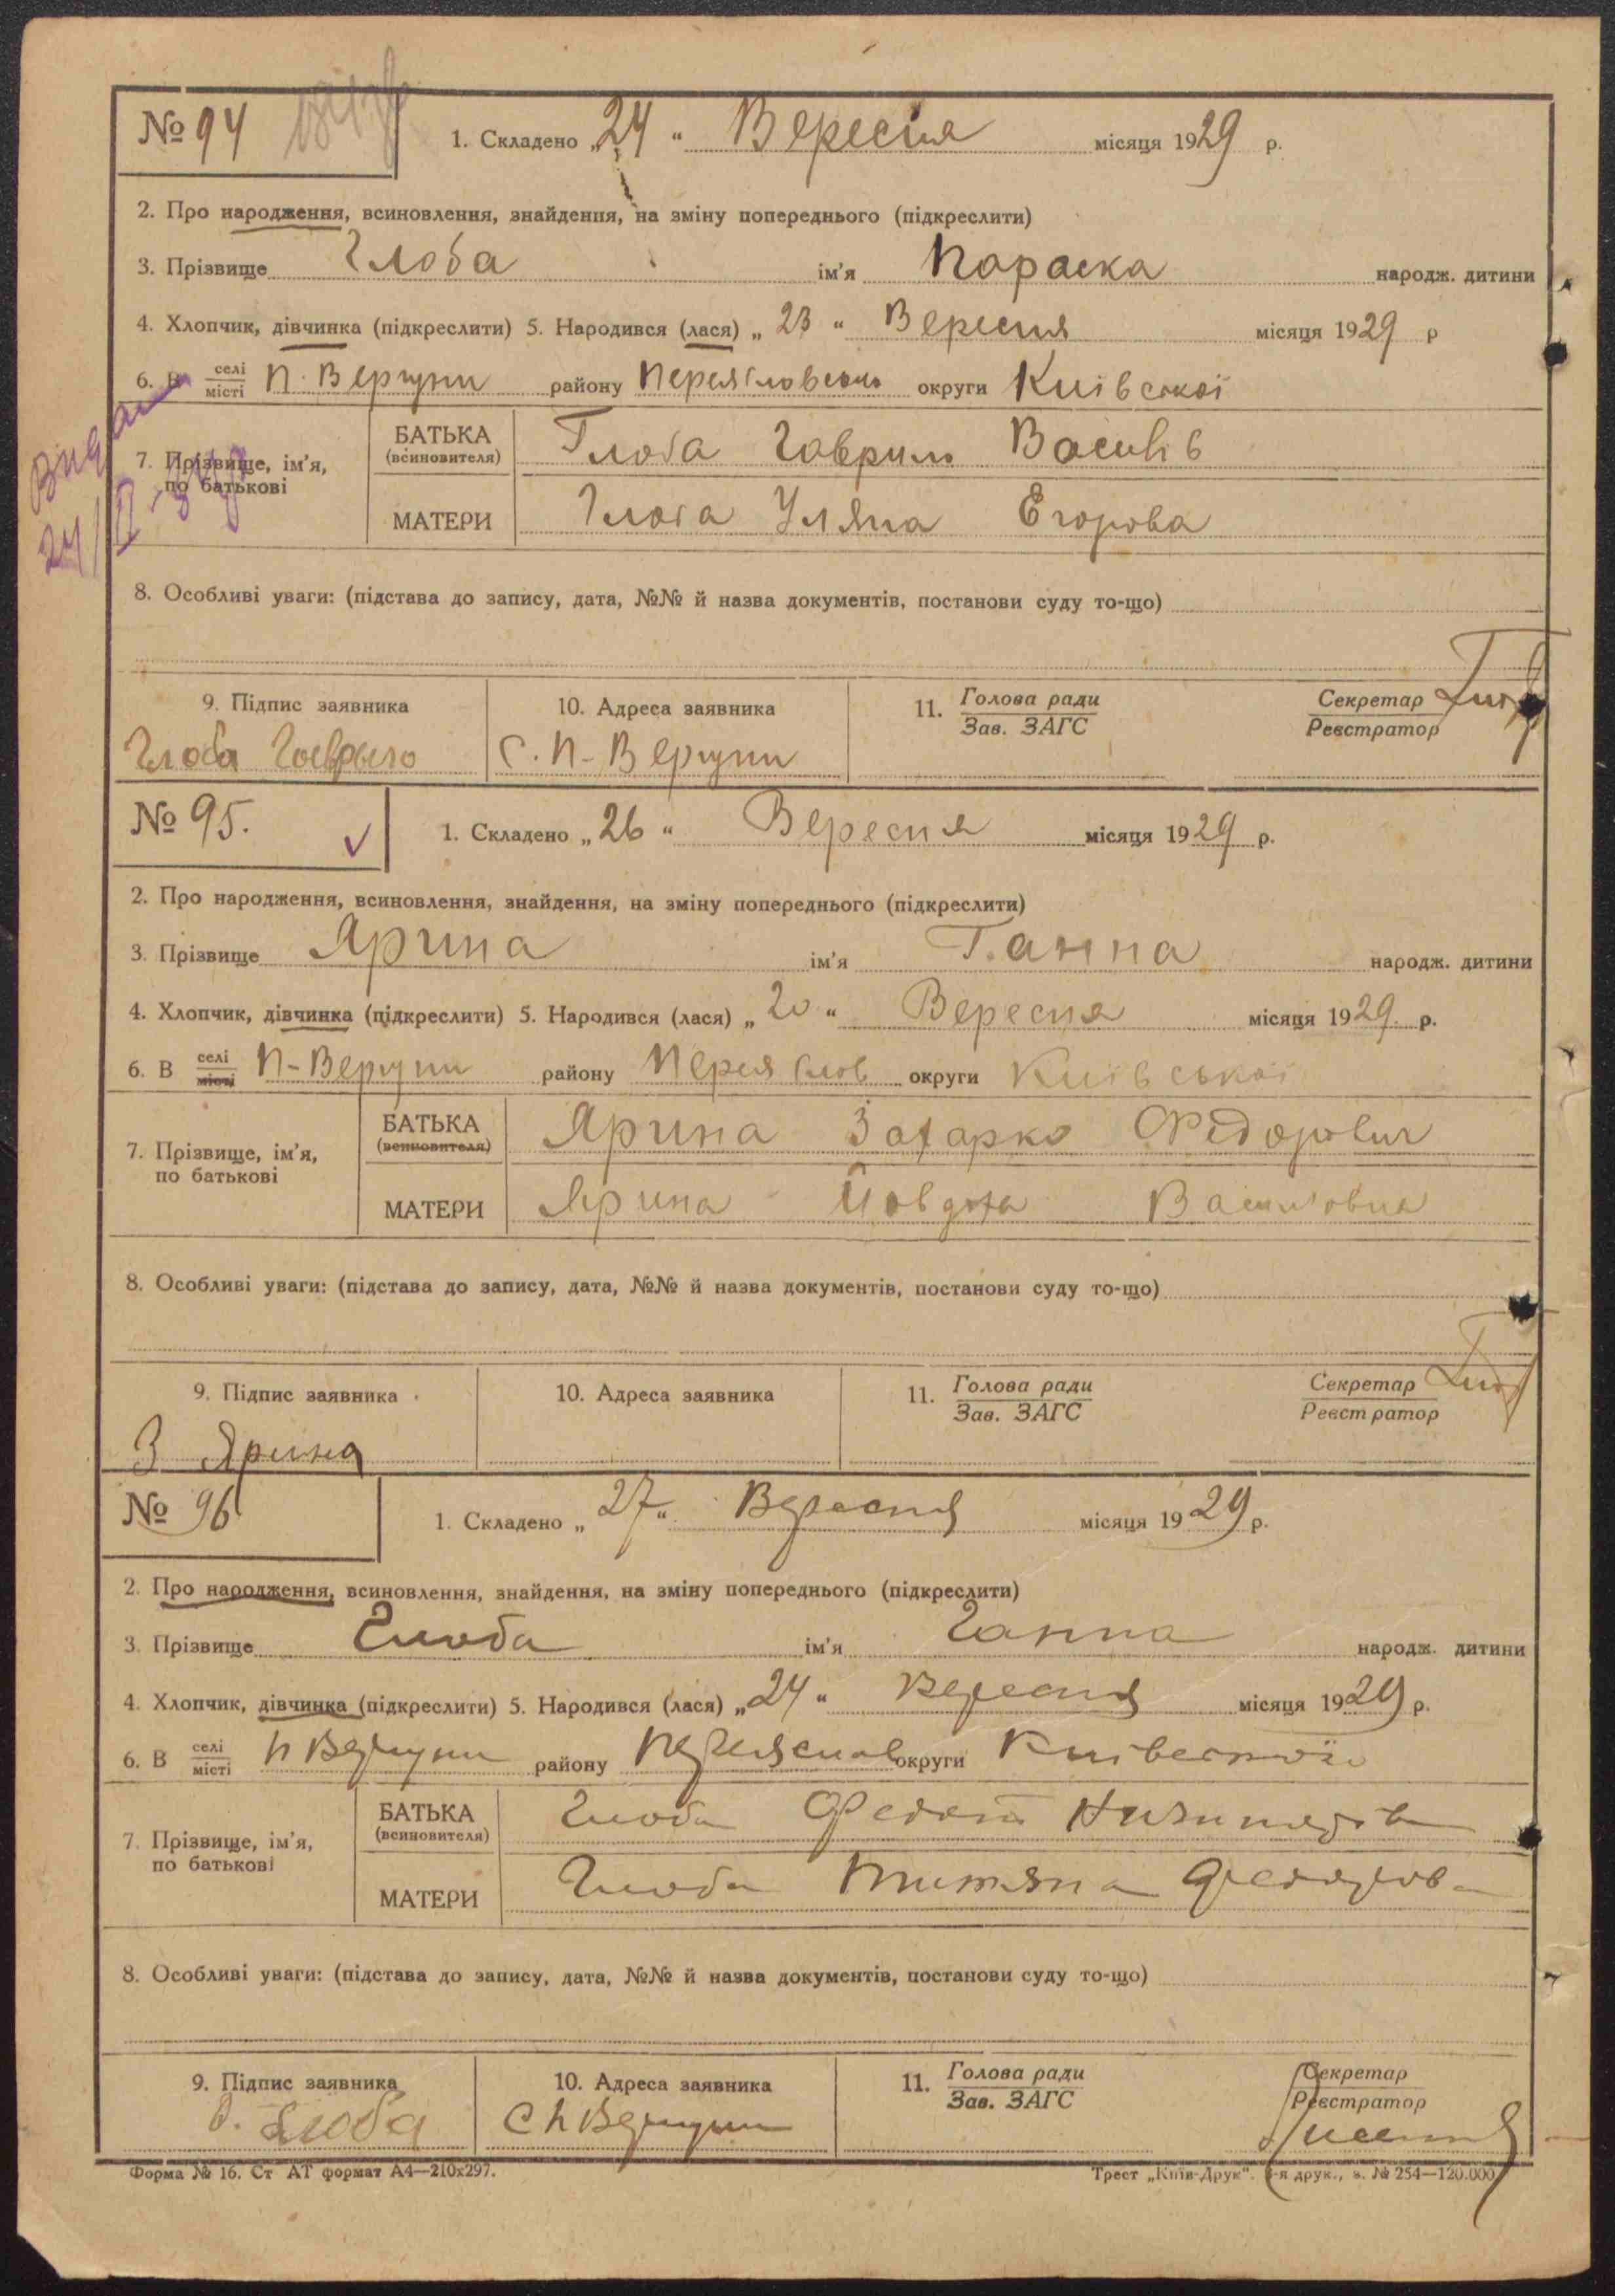 № 94 1. Складено „24“ Вересня місяця 1929 р.
2. Про народження, всиновлення, знайдення, на зміну попереднього (підкреслити)
3. Прізвище Глоба ім'я Параска народж. дитини
4. Хлопчик, дівчинка (підкреслити) 5. Народився (лася) „23“ Вересня місяця 1929 р
6. В селі місті П. Вергуни району Переяславсько округи Київської
Видан
24/II
7. Прізвище, ім'я, по батькові
БАТЬКА (всиновителя) Глоба Гаврило Василів
МАТЕРИ Глоба Уляна Егорова
8. Особливі уваги: (підстава до запису, дата, №№ й назва документів, постанови суду то-що)
9. Підпис заявника 10. Адреса заявника 11. Голова ради Зав. ЗАГС Секретар Реєстратор
Глоба Гаврыло С. П-Вергуни
№ 95. 1. Складено „26“ Вересня місяця 1929 р.
2. Про народження, всиновлення, знайдення, на зміну попереднього (підкреслити)
3. Прізвище Ярина ім'я Ганна народж. дитини
4. Хлопчик, дівчинка (підкреслити) 5. Народився (лася) „20“ Вересня місяця 1929 р.
6. В селі місті П-Вергуни району Переяслов округи Київської
7. Прізвище, ім'я, по батькові
БАТЬКА (всиновителя) Ярина Захарко Федорович
МАТЕРИ Ярина Йовдоха Васильовна
8. Особливі уваги: (підстава до запису, дата, №№ й назва документів, постанови суду то-що)
9. Підпис заявника 10. Адреса заявника 11. Голова ради Зав. ЗАГС Секретар Реєстратор
З Ярина
№ 96 1. Складено „27“ Вересня місяця 1929 р.
2. Про народження, всиновлення, знайдення, на зміну попереднього (підкреслити)
3. Прізвище Глоба ім'я Ганна народж. дитини
4. Хлопчик, дівчинка (підкреслити) 5. Народився (лася) „24“ Вересня місяця 1929 р.
6. В селі місті П Вергуни району Переяслав округи Киівської
7. Прізвище, ім'я, по батькові
БАТЬКА (всиновителя) Глоба Федот
МАТЕРИ Глоба Титяна Федорова
8. Особливі уваги: (підстава до запису, дата, №№ й назва документів, постанови суду то-що)
9. Підпис заявника 10. Адреса заявника 11. Голова ради Зав. ЗАГС Секретар Реєстратор
Глоба С П Вергуни
Форма № 16. Ст АТ формат А4—210х297. Трест „Київ-Друк“. я друк., з. № 254—120.000